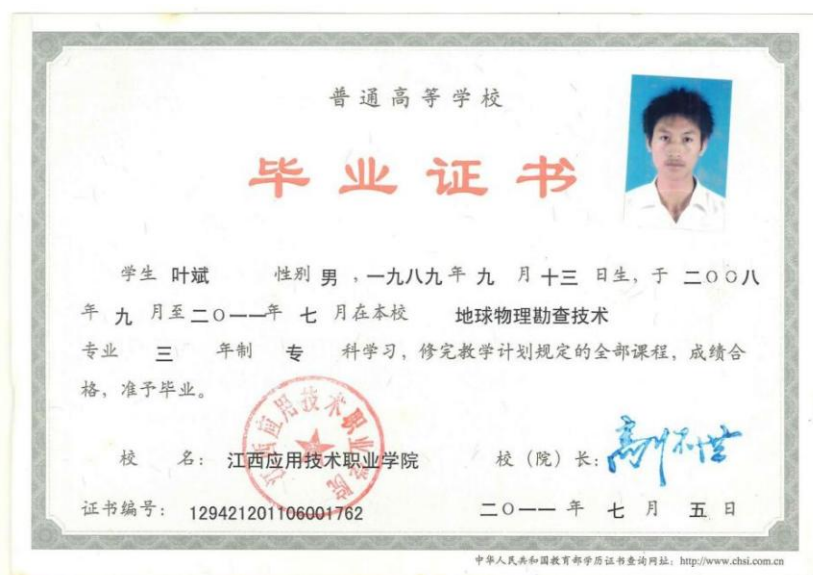 普通高等学校
毕业证书
学生 叶斌 性别 男 ，一九八九 年 九 月 十三 日生，于 二〇〇八
年 九 月至 二〇一一 年 七 月在本校 地球物理勘查技术
专业 三 年制 专 科学习，修完教学计划规定的全部课程，成绩合
格，准予毕业。
江西应用技术职业学院
校 名： 江西应用技术职业学院 校（院）长：
证书编号： 129421201106001762 二〇一一 年 七 月 五 日
中华人民共和国教育部学历证书查询网址：http://www.chsi.com.cn